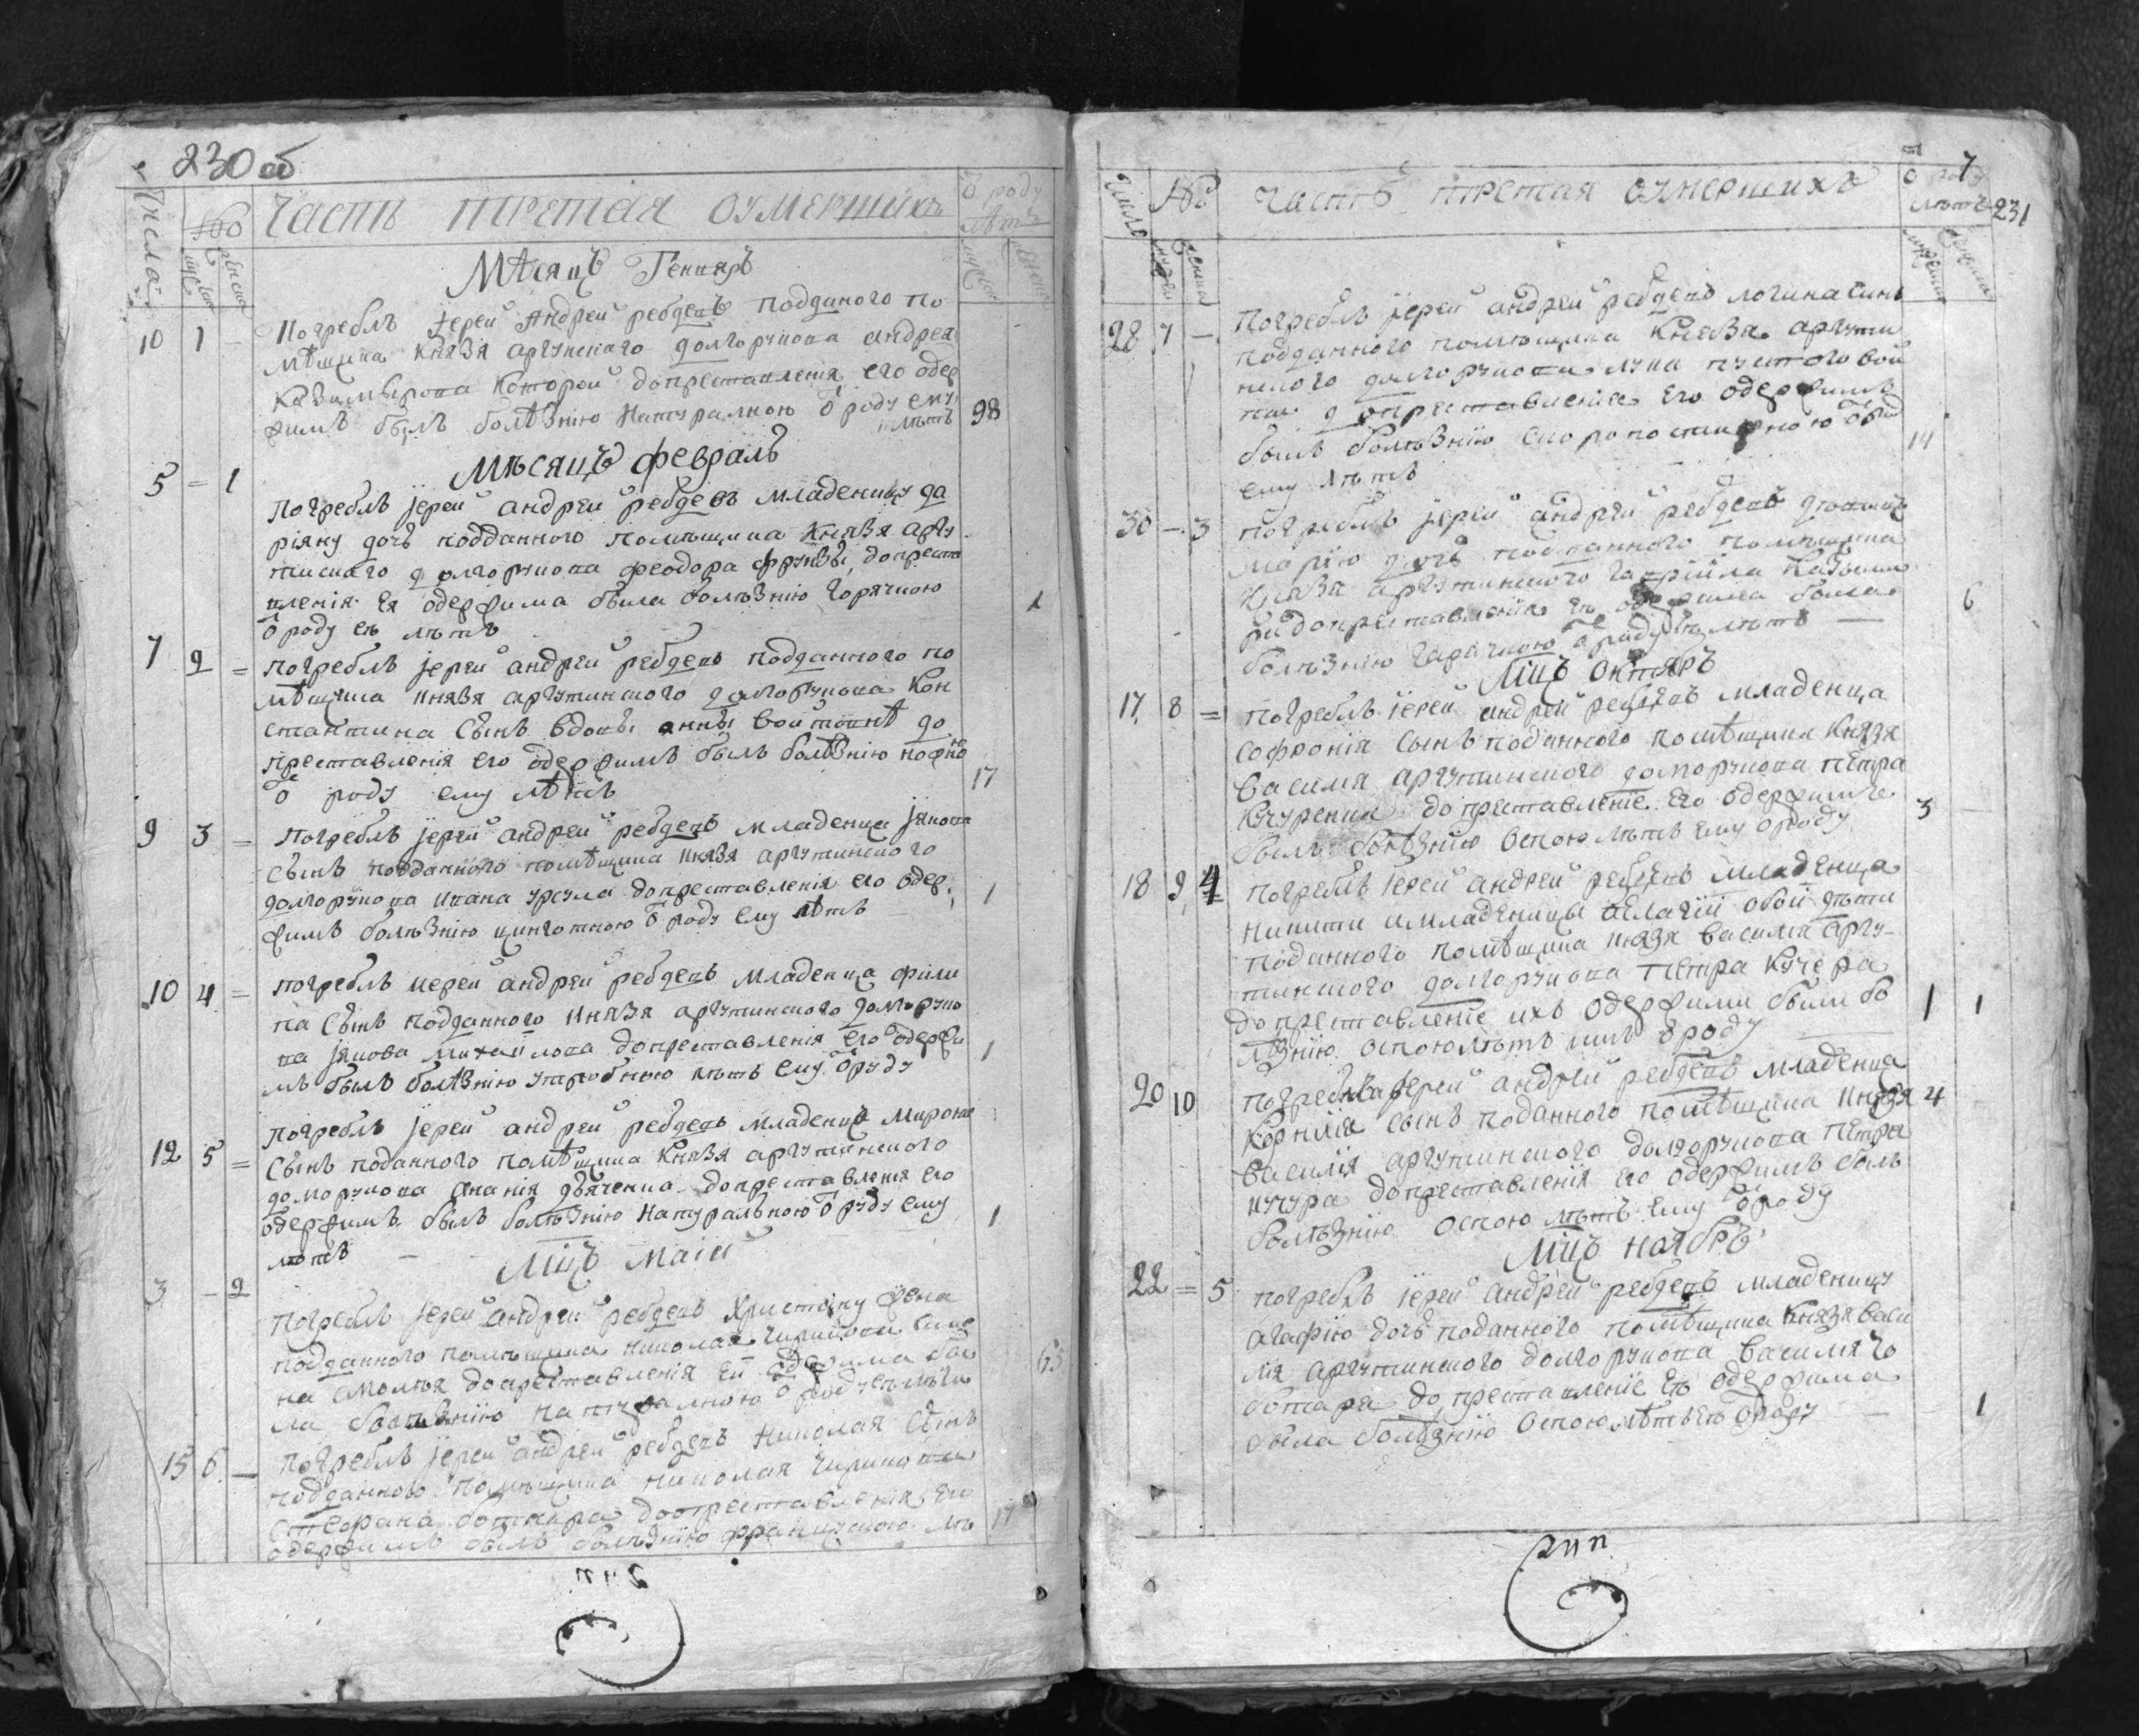 230 об
Числа № Часть третая оумершихъ Ѿ роду лѣтъ
мужеска женска
Мѣсяцъ Генваръ
10 1 – Погреблъ Іерей Андрей ребдевъ подданого по
мѣщика князя аргутинскаго долгорукова андрея
Казимырова которой допреставленія его одер
жимъ былъ болѣзнію натуралною Ѿ роду ему
лѣтъ 98
Мѣсяцъ февралъ
5 = 1 погреблъ јерей андрей ребдевъ младеницу да
ріяну дочь подданного помѣщика Князя аргу
тинскаго долгорукова феодора фрунзы, допреста
вленія Ея одержима была болѣзнію горячкою
Ѿ роду еѣ лѣтъ 1
7 2 = погреблъ јерей андрей ребдевъ подданного по
мѣщика князя аргутинского долгорукова Кон
стантина Сынъ вдовы анны войтовнѣ до
преставленія его одержимъ былъ болѣзнію
Ѿ роду ему лѣтъ 17
9 3 = погреблъ јерей андрей ребдевъ младенца јякова
Сынъ подданного помѣщика князя аргутинского
долгорукова ивана урсула допреставленія его одер
жимъ болѣзнію цинготною Ѿ роду ему лѣтъ 1
10 4 = погреблъ иерей андрей ребдевъ младенца фили
па Сынъ подданного князя аргутинского долгоруко
ва јякова михайлова допреставленія его одержи
мъ былъ болѣзнію утробною лѣтъ ему Ѿ роду 1
12 5 = погреблъ јерей андрей ребдевъ младенца мирона
Сынъ поданного помѣщика Князя аргутинского
долгорукова ананія дьяченка допреставленія его
одержимъ былъ болѣзнію натуральною Ѿ роду ему
лѣтъ 1
Мцъ Маій
3 – 2 погреблъ јерей андрей ребдевъ Христину жена
подданного помѣщика николая
на допреставленія ей одержима бы
ла болѣзнію натуралною Ѿ роду еѣ лѣтъ 63
15 6 – погреблъ јерей андрей ребдевъ николая Сынъ
подданного помѣщика николая
стефана допреставленія его
одержимъ былъ болѣзнію лѣ 17
7
231
Число № Часть третая оумершихъ Ѿ роду лѣтъ
28 7 – погреблъ јерей андрей ребдевъ логина сынъ
подданного помѣщика Князя аргути
нского долгорукова луки пустоговой
допреставленіе его одержимъ
былъ болѣзнію Ѿ род
ему лѣтъ 14
30 – 3 погреблъ јерей андрей ребдевъ
марію дочь подданного помѣщика
князя аргутинского гавріила
допреставленія еѣ одержима была
болѣзнію гарячкою Ѿ роду еѣ лѣтъ – 6
Мцъ Октябръ
17 8 = погреблъ іерей андрей ребдевъ младенца
софронія сынъ поданного помѣщика Князя
василія аргутинского долгорукова петра
Кучеренка допреставленіе его одержимъ
былъ болѣзнію оспою лѣтъ ему Ѿ роду 3
18 9 4 погреблъ іерей андрей ребдевъ младенца
никити имладеницы пелагіи обои дѣти
поданного помѣщика князя василія аргу-
тинского долгорукова петра кучера
допреставленіе ихъ одержими были бо
лѣзнію оспою лѣтъ имъ Ѿ роду 1 1
20 10 погреблъ јерей андрей ребдевъ младенца
корнилія сынъ поданного помѣщика князя 4
василія аргутинского долгорукова петра
кучура допреставленія его одержимъ былъ
болѣзнію оспою лѣтъ ему Ѿ роду
Мцъ ноябръ
22 = 5 погреблъ јерей андрей ребдевъ младеницу
агафію дочь поданного помѣщика Князя васи
лія аргутинского долгорукова василія го
до преставленіе еѣ одержима
была болѣзнію оспою лѣтъ еѣ Ѿ роду 1